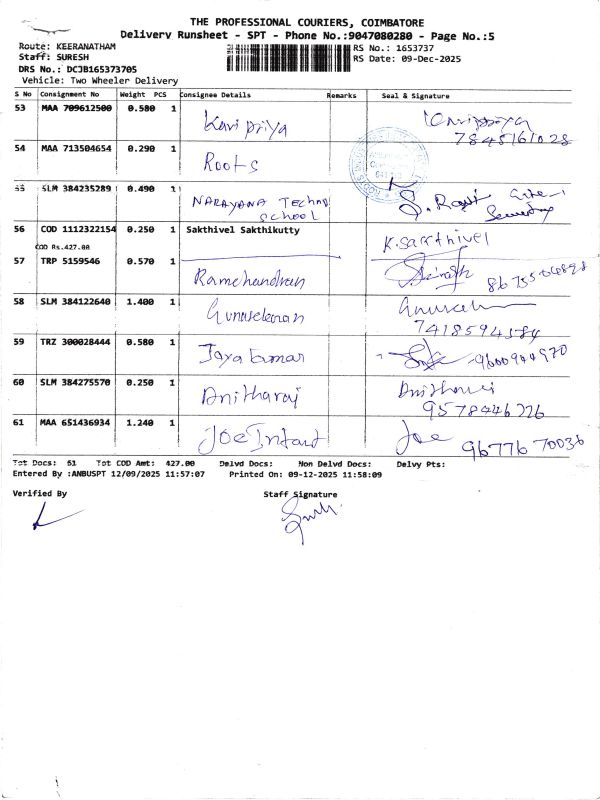 THE PROFESSIONAL COURIERS, COIMBATORE
Delivery Runsheet - SPT - Phone No.:9047080280 - Page No.:5
Route: KEERANATHAM RS No.: 1653737
Staff: SURESH RS Date: 09-Dec-2025
DRS No.: DCJB165373705
Vehicle: Two Wheeler Delivery
S No Consignment No Weight PCS Consignee Details Remarks Seal & Signature
53 MAA 709612500 0.580 1 Kavi priya Kavipriya
7845161028
54 MAA 713504654 0.290 1 Roots
55 SLM 384235289 0.490 1 NARAYANA Techno
School
56 COD 1112322154 0.250 1 Sakthivel Sakthikutty K. Sakthivel
COD Rs.427.00
57 TRP 5159546 0.570 1 Ramchandran
58 SLM 384122640 1.400 1 Gunasekaran
7418594584
59 TRZ 300028444 0.580 1 Jayakumar 9600944970
60 SLM 384275570 0.250 1 Anitharaj
9578446226
61 MAA 651436934 1.240 1 Joe Infant Joe 96776 70036
Tot Docs: 61 Tot COD Amt: 427.00 Delvd Docs: Non Delvd Docs: Delvy Pts:
Entered By :ANBUSPT 12/09/2025 11:57:07 Printed On: 09-12-2025 11:58:09
Verified By Staff Signature